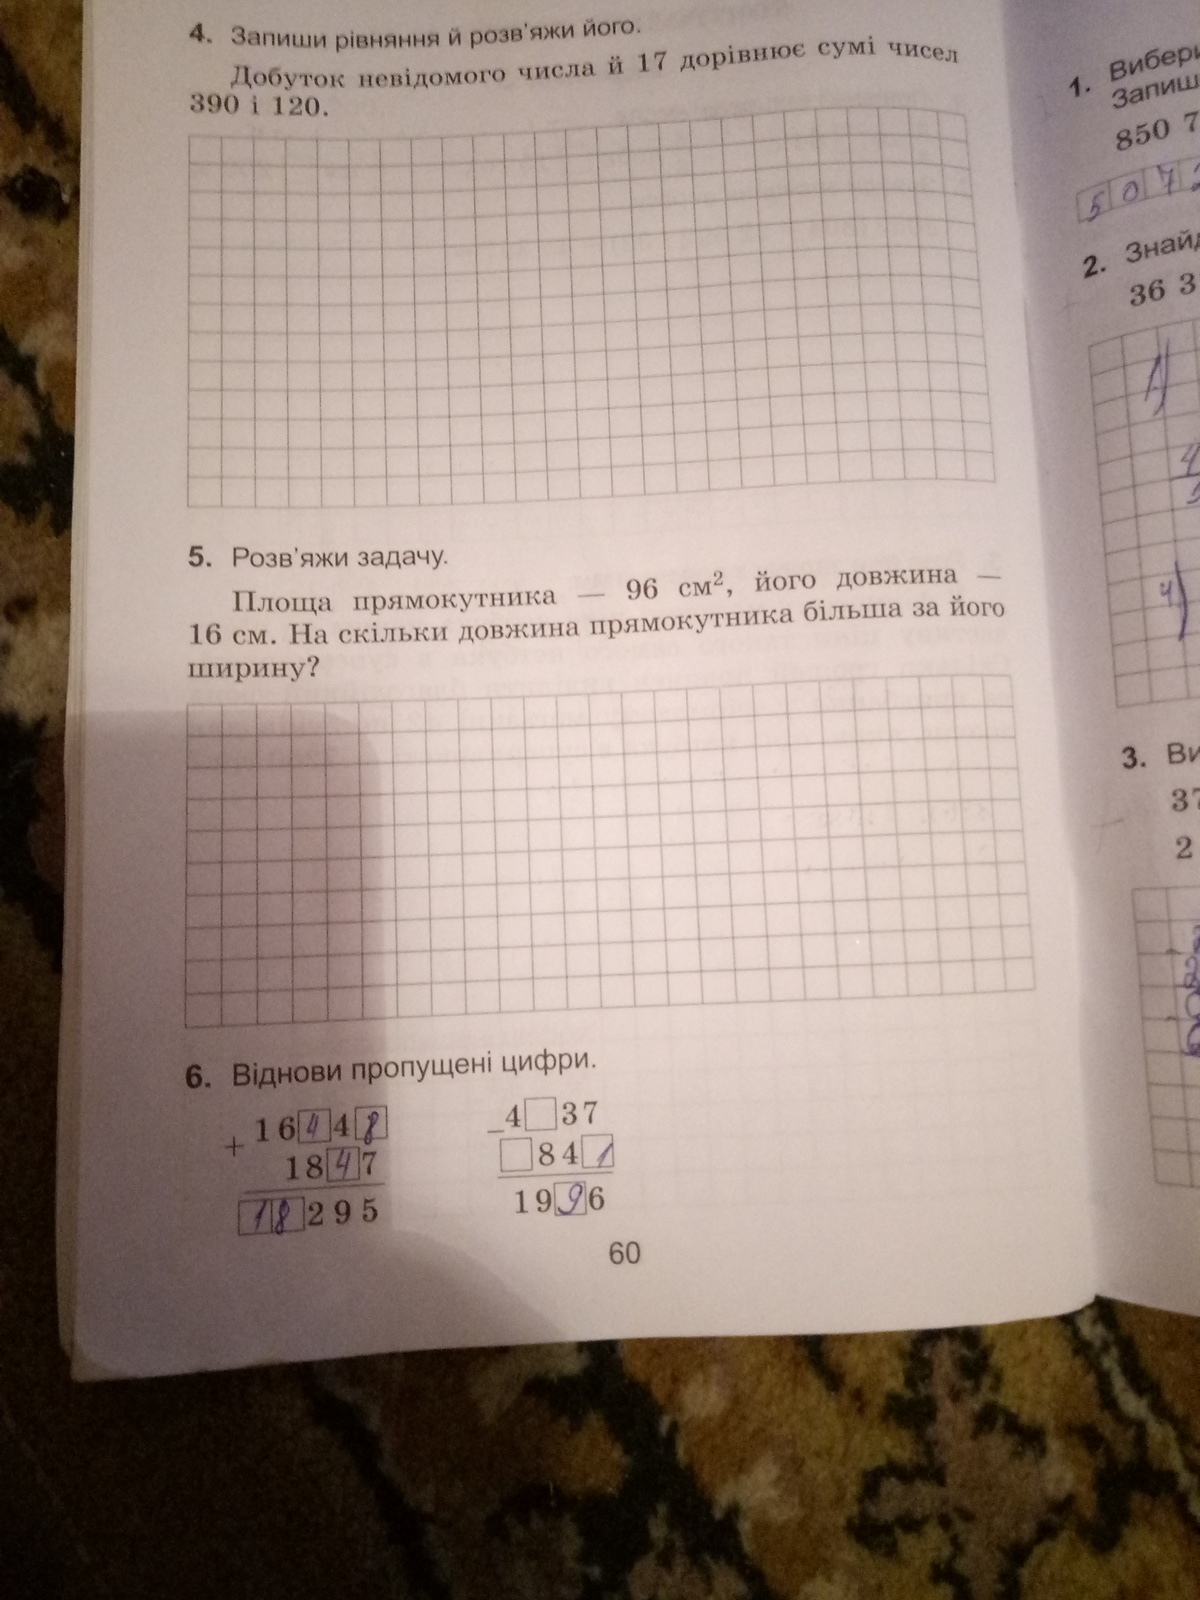 4. Запиши рівняння й розв'яжи його.
Добуток невідомого числа й 17 дорівнює сумі чисел
390 і 120.
5. Розв'яжи задачу.
Площа прямокутника — 96 см², його довжина —
16 см. На скільки довжина прямокутника більша за його
ширину?
6. Віднови пропущені цифри.
+ 16448
1847
18295
_4 37
841
1996
60
1. Вибери
Запиш
850 7
5 0 7 2
2. Знайд
36 3
1)
4)
3. Ви
37
2